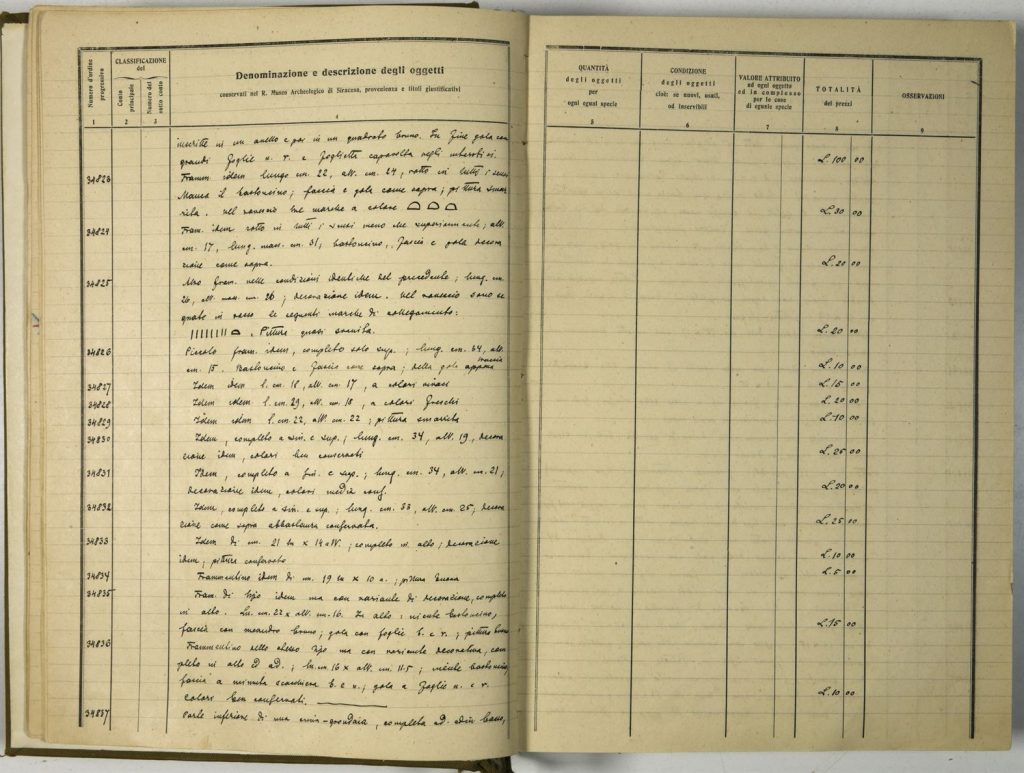 Numero d'ordine progressivo
CLASSIFICAZIONE del
Conto principale
Numero del sotto conto
Denominazione e descrizione degli oggetti
conservati nel R. Museo Archeologico di Siracusa, provenienza e titoli giustificativi
1 2 3 4
QUANTITÀ degli oggetti per ogni egual specie
CONDIZIONE degli oggetti cioè: se nuovi, usati, od inservibili
VALORE ATTRIBUITO ad ogni oggetto ed in complesso per le cose di eguale specie
TOTALITÀ dei prezzi
OSSERVAZIONI
5 6 7 8 9
inscritte in un anello e poi in un quadrato bruno. In fine gola con
grandi foglie n. r. e foglietta capovolta negli interstizi. L. 100 00
34823 Framm. idem lungo cm. 22, alt. cm. 24, rotto in tutti i sensi
Manca il bastoncino; fascia e gola come sopra; pittura smar
rita. Nel rovescio tre marche a colore L. 30 00
34824 Fram. idem rotto in tutti i sensi meno che superiormente; alt.
cm. 17, lung. mass. cm. 31; bastoncino, fascia e gola decora
zione come sopra. L. 20 00
34825 Altro fram. nelle condizioni identiche del precedente; lung. cm.
26, alt. mass. cm. 26; decorazione idem. Nel rovescio sono se
gnate in rosso le seguenti marche di collegamento:
Pittura quasi svanita. L. 20 00
34826 Piccolo fram. idem, completo solo sup.; lung. cm. 34, alt.
cm. 15. Bastoncino e fascia come sopra; della gola appena traccia L. 10 00
34827 Idem idem l. cm. 18, alt. cm. 17, a colori vivaci L. 15 00
34828 Idem idem l. cm. 29, alt. cm. 18, a colori freschi L. 20 00
34829 Idem idem l. cm. 22, alt. cm. 22; pittura smarrita L. 10 00
34830 Idem, completo a sin. e sup.; lung. cm. 34, alt. 19, decora
zione idem, colori ben conservati L. 25 00
34831 Idem, completo a sin. e sup.; lung. cm. 34, alt. cm. 21;
decorazione idem, colori media cons. L. 20 00
34832 Idem, completo a sin. e sup.; lung. cm. 33, alt. cm. 25, decora
zione come sopra abbastanza conservata. L. 25 00
34833 Idem di cm. 21 ln × 14 alt.; completo in alto; decorazione
idem; pittura conservata L. 10 00
34834 Frammentino idem di cm. 19 ln × 10 a.; pittura buona L. 5 00
34835 Fram. di tipo idem ma con variante di decorazione, completo
in alto. Ln. cm. 22 × alt. cm. 16. In alto: niente bastoncino,
fascia con meandro bruno; gola con foglie b. e r.; pittura buona L. 15 00
34836 Frammentino dello stesso tipo ma con variante decorativa, com
pleto in alto ed ad.; ln. cm 16 × alt. cm. 11.5; niente bastoncino,
fascia a minuta scacchiera b. e n.; gola a foglie n. e r.
Colori ben conservati. L. 10 00
34837 Parte inferiore di una sima-grondaia, completa ad.